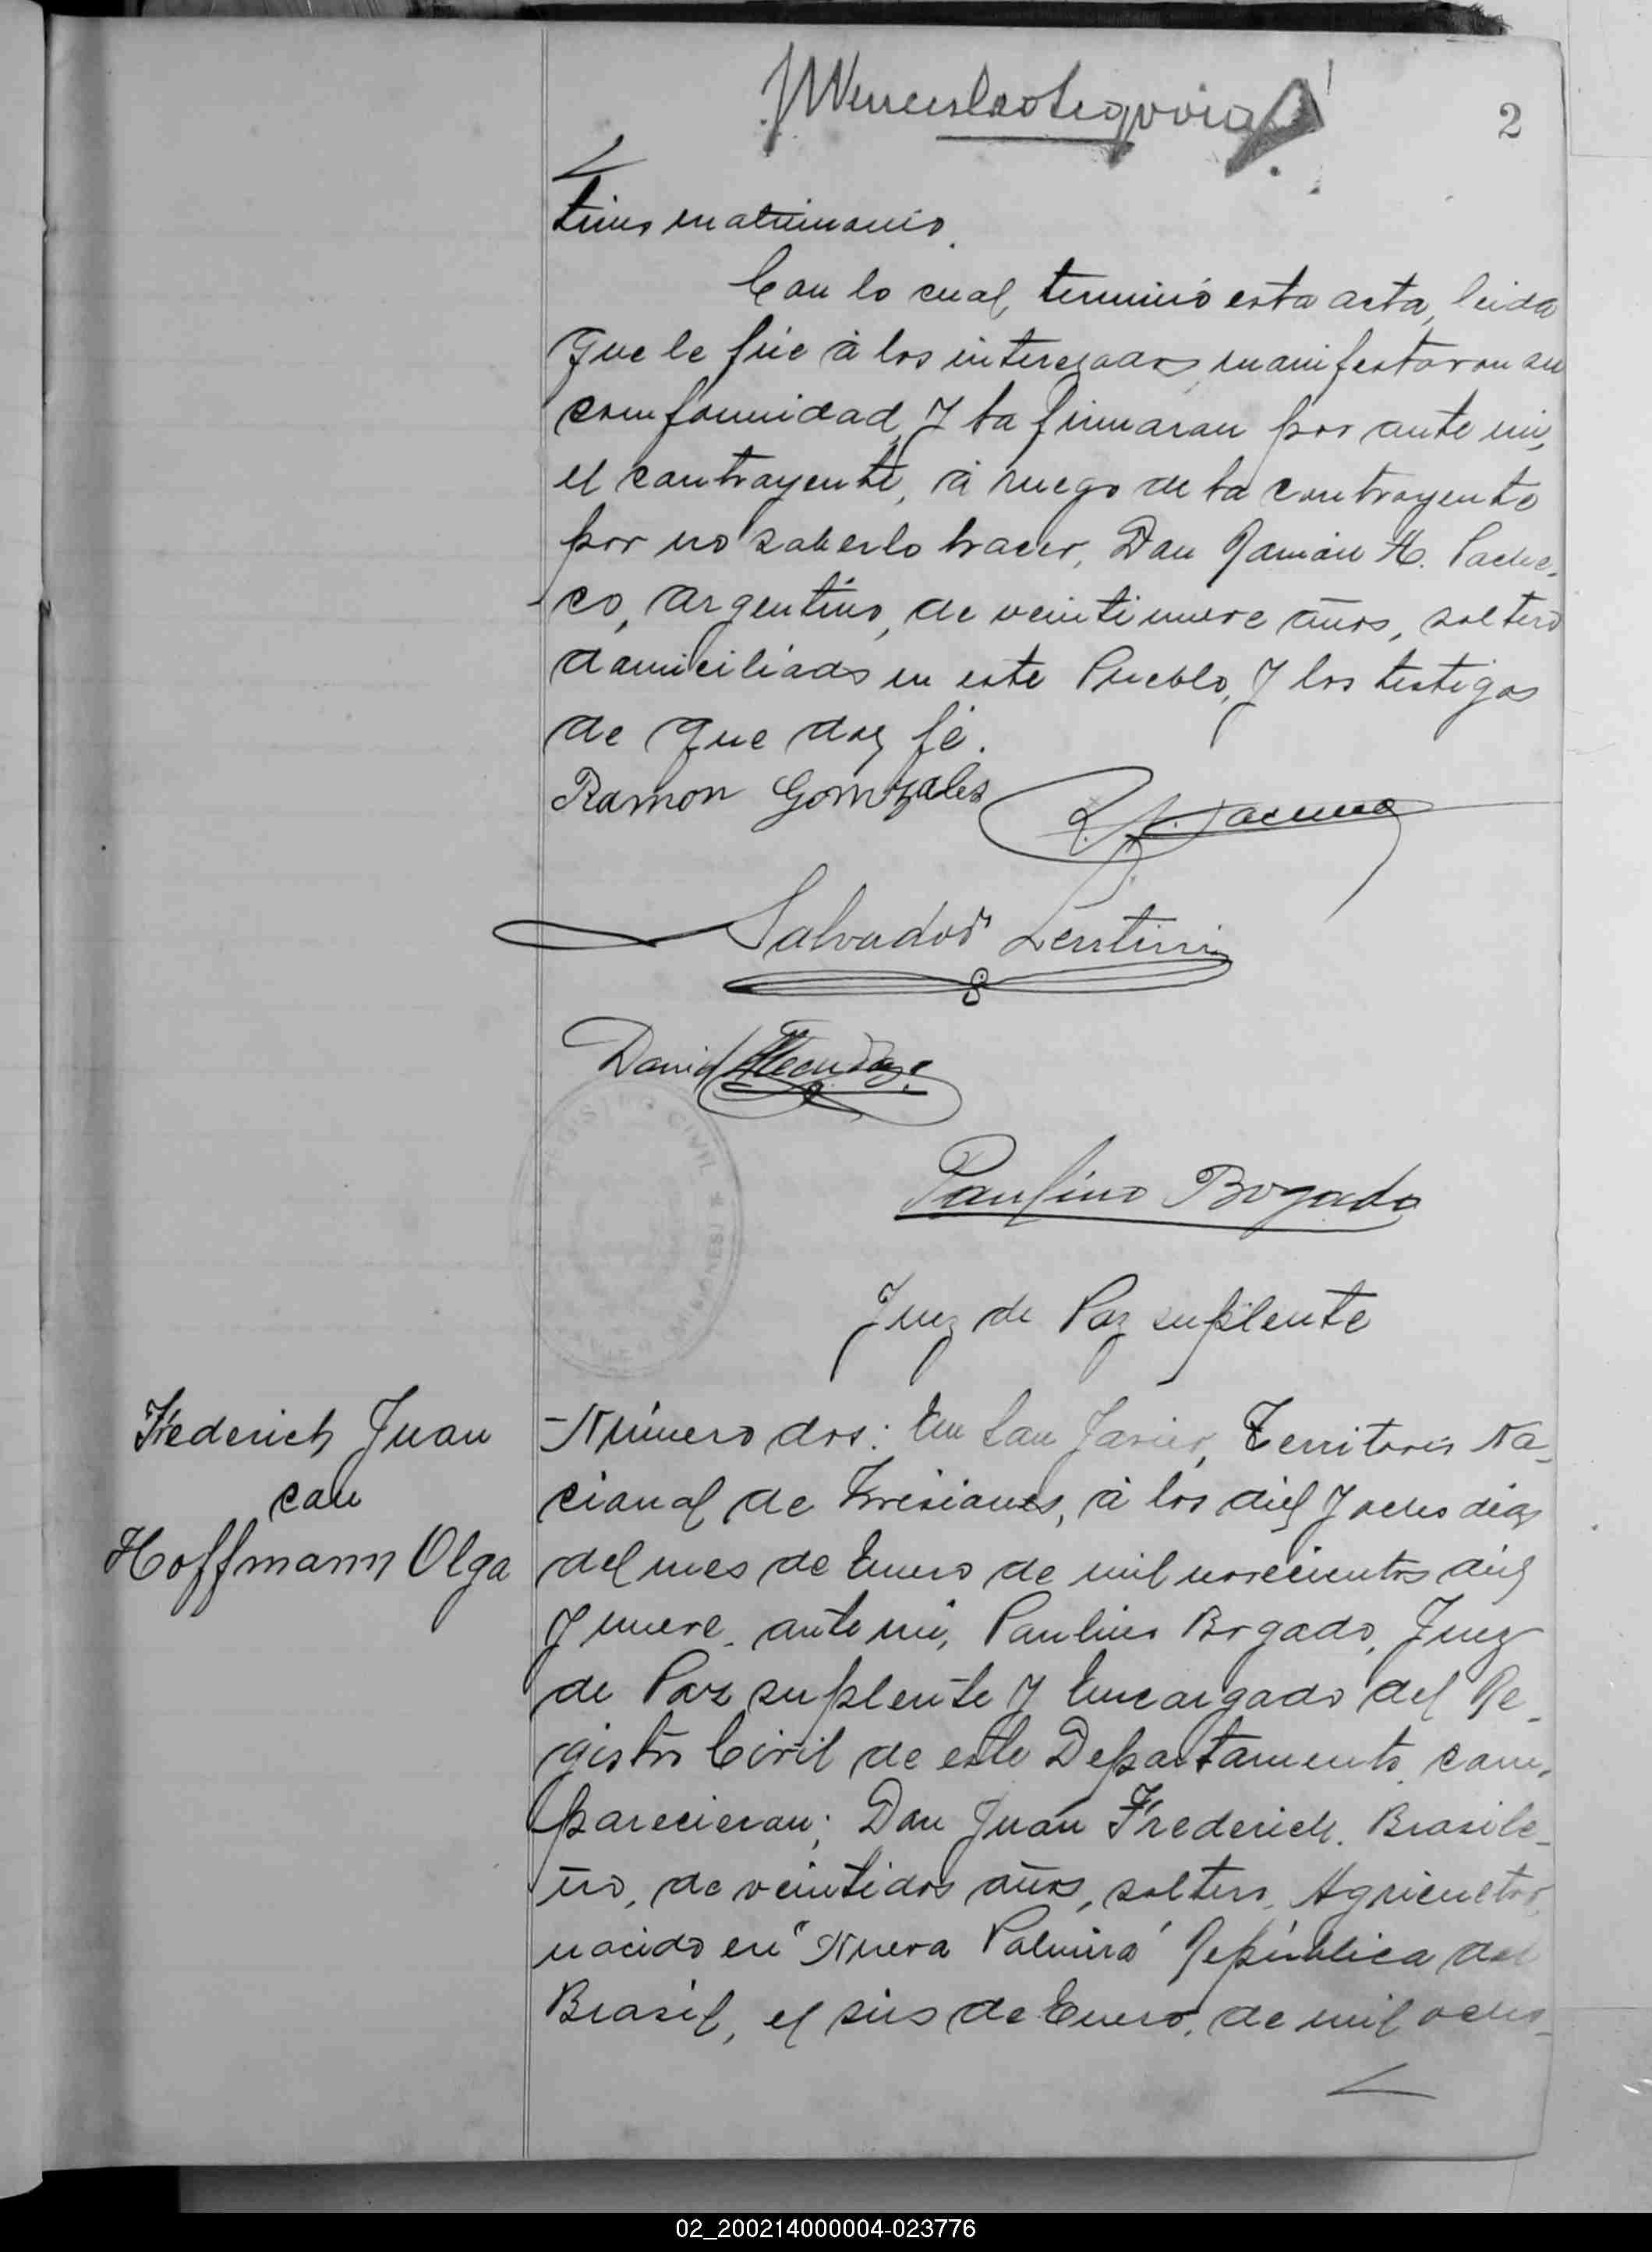 2
timo matrimonio.
Con lo cual, terminó esta acta, leida
que le fué à los interesados, manifestaron su
comformidad, y la firmaran por ante mi,
el contrayente, à ruego de la contrayente
por no saberlo hacer, Don Ramón H. Pache-
co, Argentino, de veintinueve años, soltero
domiciliado en este Pueblo, y los testigos
de que doy fé.
Ramon Gomzales
Salvador Lentini
David
Paulino Bogado
REGISTRO CIVIL
MISIONES
Juez de Paz suplente
Frederich Juan
con
Hoffmann Olga
Número dos: En San Javier, Territorio Na-
cional de Misiones, à los diez y ocho dias
del mes de Enero de mil novecientos diez
y nueve, ante mi, Paulino Bogado, Juez
de Paz suplente y Encargado del Re-
gistro Civil de este Departamento, com-
parecieron; Don Juan Frederich. Brasile-
ño, de veintidos años, soltero, Agricultor,
nacido en "Nueva Palmira" República del
Brasil, el seis de Enero, de mil ocho-
02_200214000004-023776